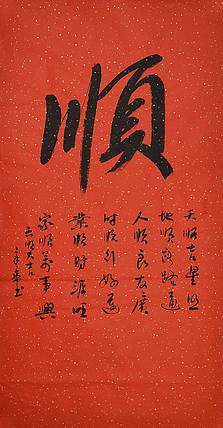 順
天順吉星照
地順路路通
人順良友廣
時順引好運
業順財源旺
家順萬事興
六順大吉